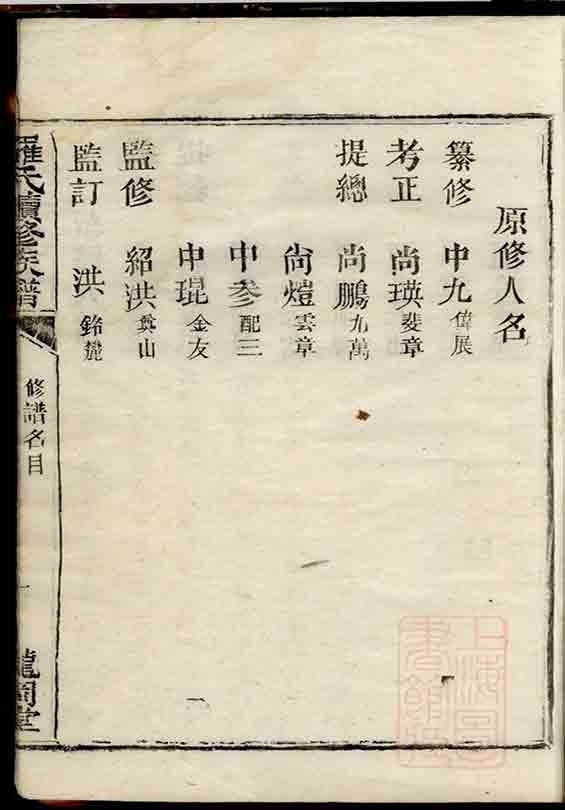 原修人名
纂修 中九 偉展
考正 尚瑛 斐章
提總 尚鵬 九萬
尙熷 雲章
中參 配三
中琨 金友
監修 紹洪 奠山
監訂 洪 銘麓
羅氏續修族譜
修譜名目
一
上海圖書館藏